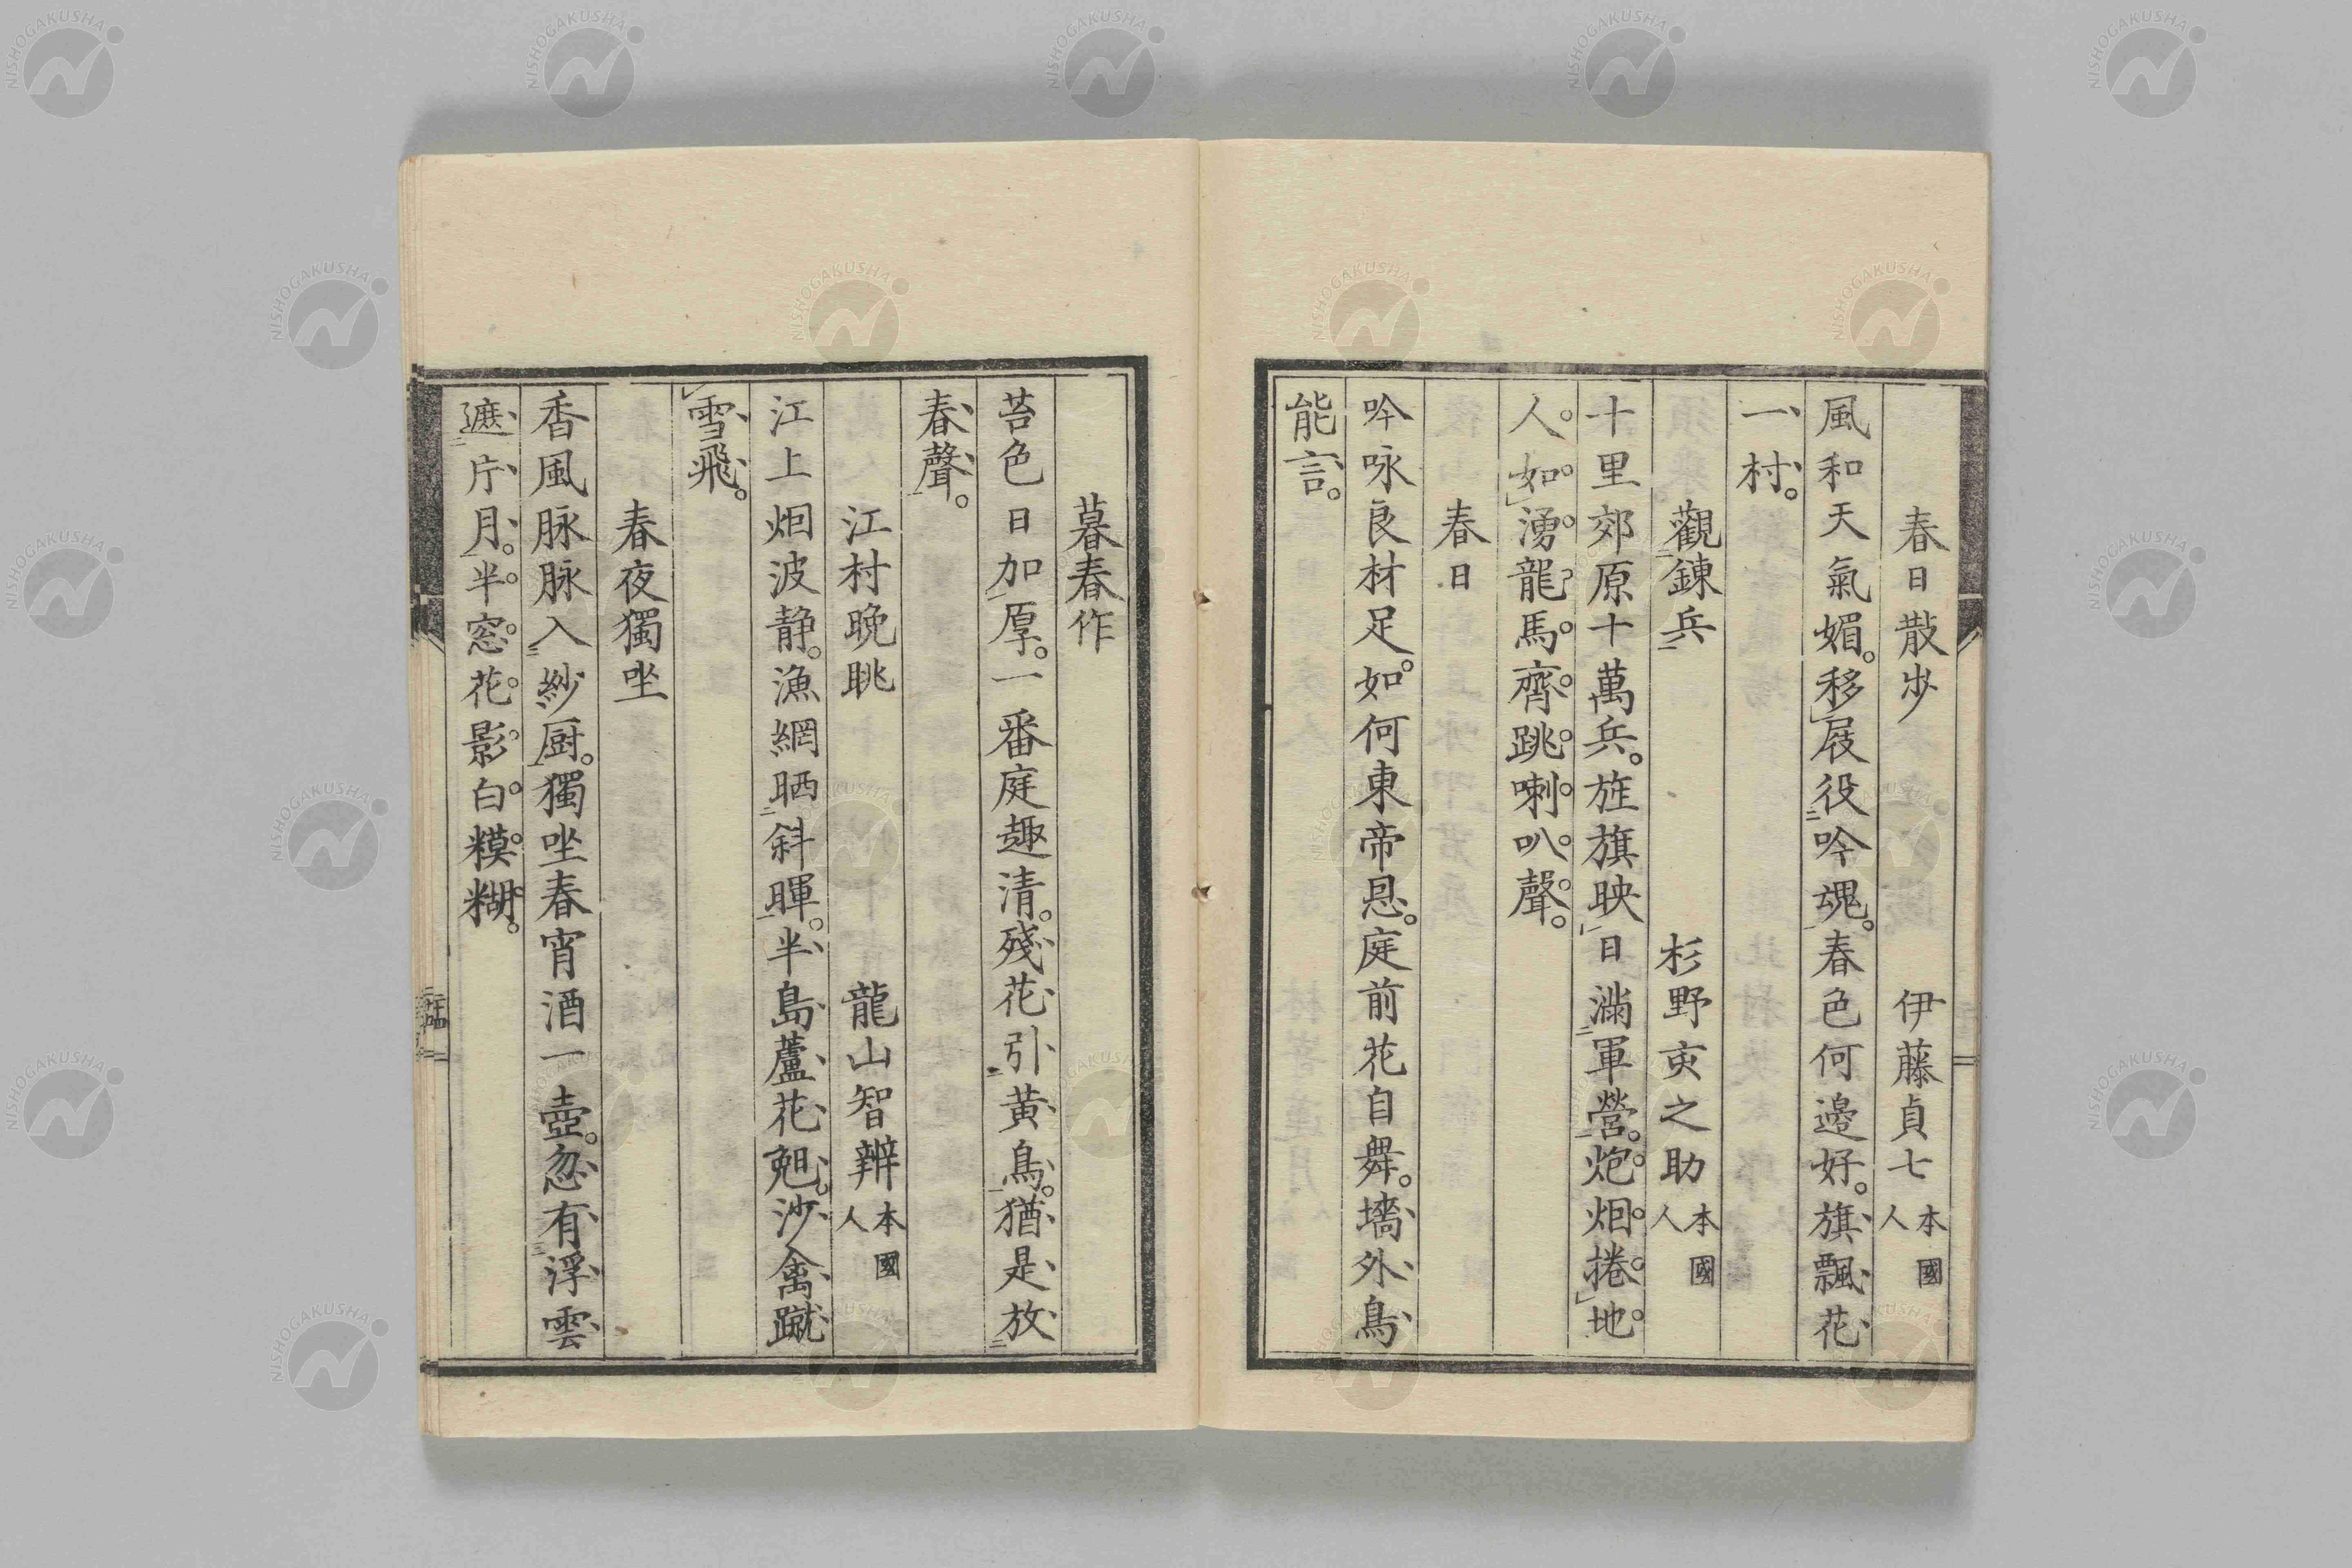 春日散步　伊藤貞七本國人
風和天氣媚。移屐役吟魂。春色何邊好。旗飄花
一村。
觀鍊兵　杉野亥之助本國人
十里郊原十萬兵。旌旗映日滿軍營。炮烟捲地
人如湧龍馬齊跳喇叭聲。
春日
吟咏良材足。如何東帝恩。庭前花自舞。墻外鳥
能言。
暮春作
苔色日加厚。一番庭趣清。殘花引黃鳥。猶是放
春聲。
江村晚眺　龍山智辨本國人
江上烟波静。漁網晒斜暉。半島蘆花兔。沙禽蹴
雪飛。
春夜獨坐
香風脉脉入紗厨。獨坐春宵酒一壺。忽有浮雲
遮片月。半窓花影白糢糊。
NISHOGAKUSHA